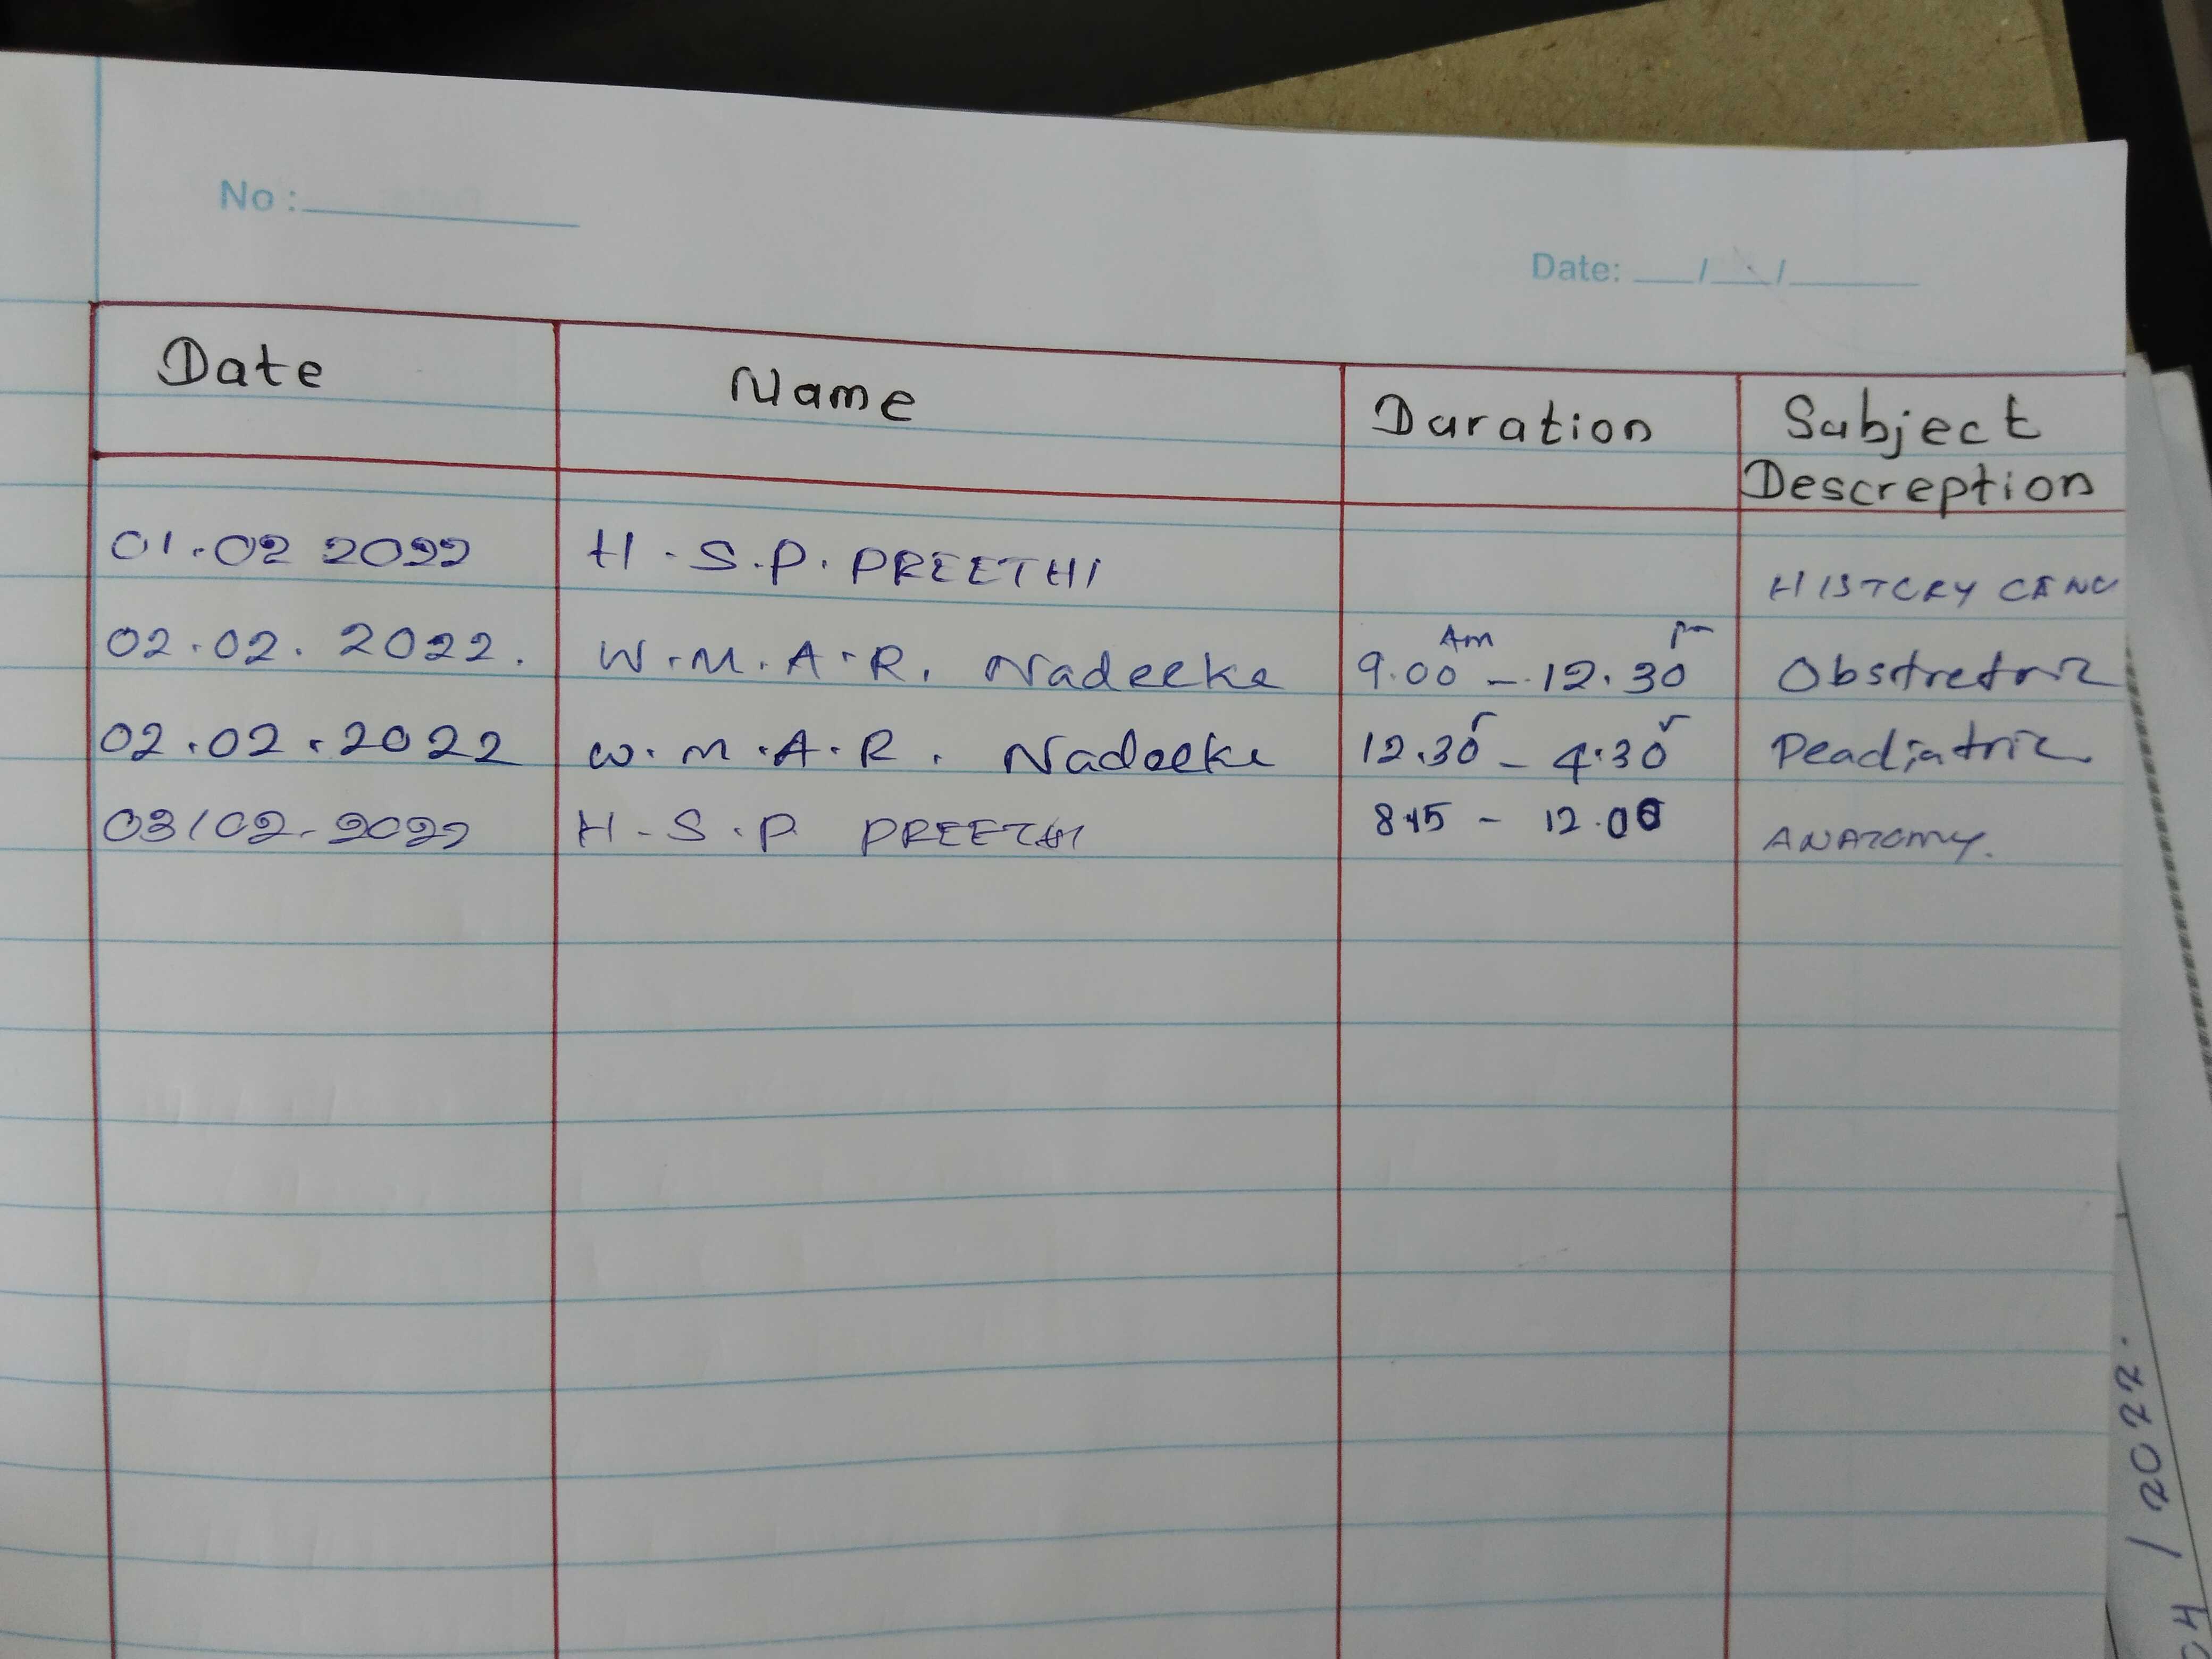 No :
Date: / /
Date Name Duration Subject Descreption
01.02 2022 H.S.P. PREETHI HISTORY
02.02.2022. W.M.A.R. Nadeeka 9.00 Am - 12.30 pm Obstretric
02.02.2022 W.M.A.R. Nadeeka 12.30 - 4.30 Peadiatric
03/02.2022 H.S.P PREETHI 8.15 - 12.00 ANATOMY.
/ 2022.